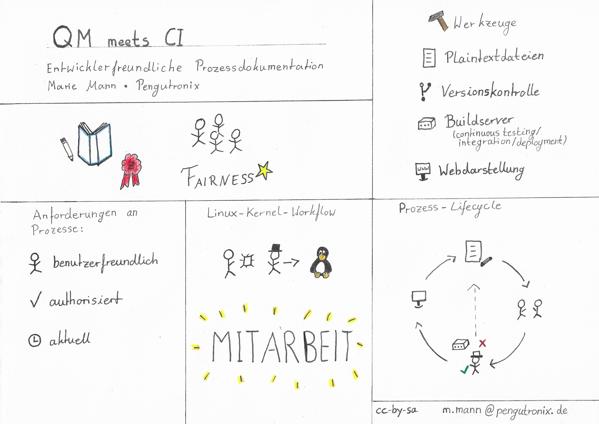 QM meets CI
Entwicklerfreundliche Prozessdokumentation
Marie Mann • Pengutronix
FAIRNESS
Werkzeuge
Plaintextdateien
Versionskontrolle
Buildserver
(continuous testing/
integration/deployment)
WWW
Webdarstellung
Anforderungen an
Prozesse:
benutzerfreundlich
authorisiert
aktuell
Linux-Kernel-Workflow
MITARBEIT
Prozess-Lifecycle
cc-by-sa m.mann@pengutronix.de